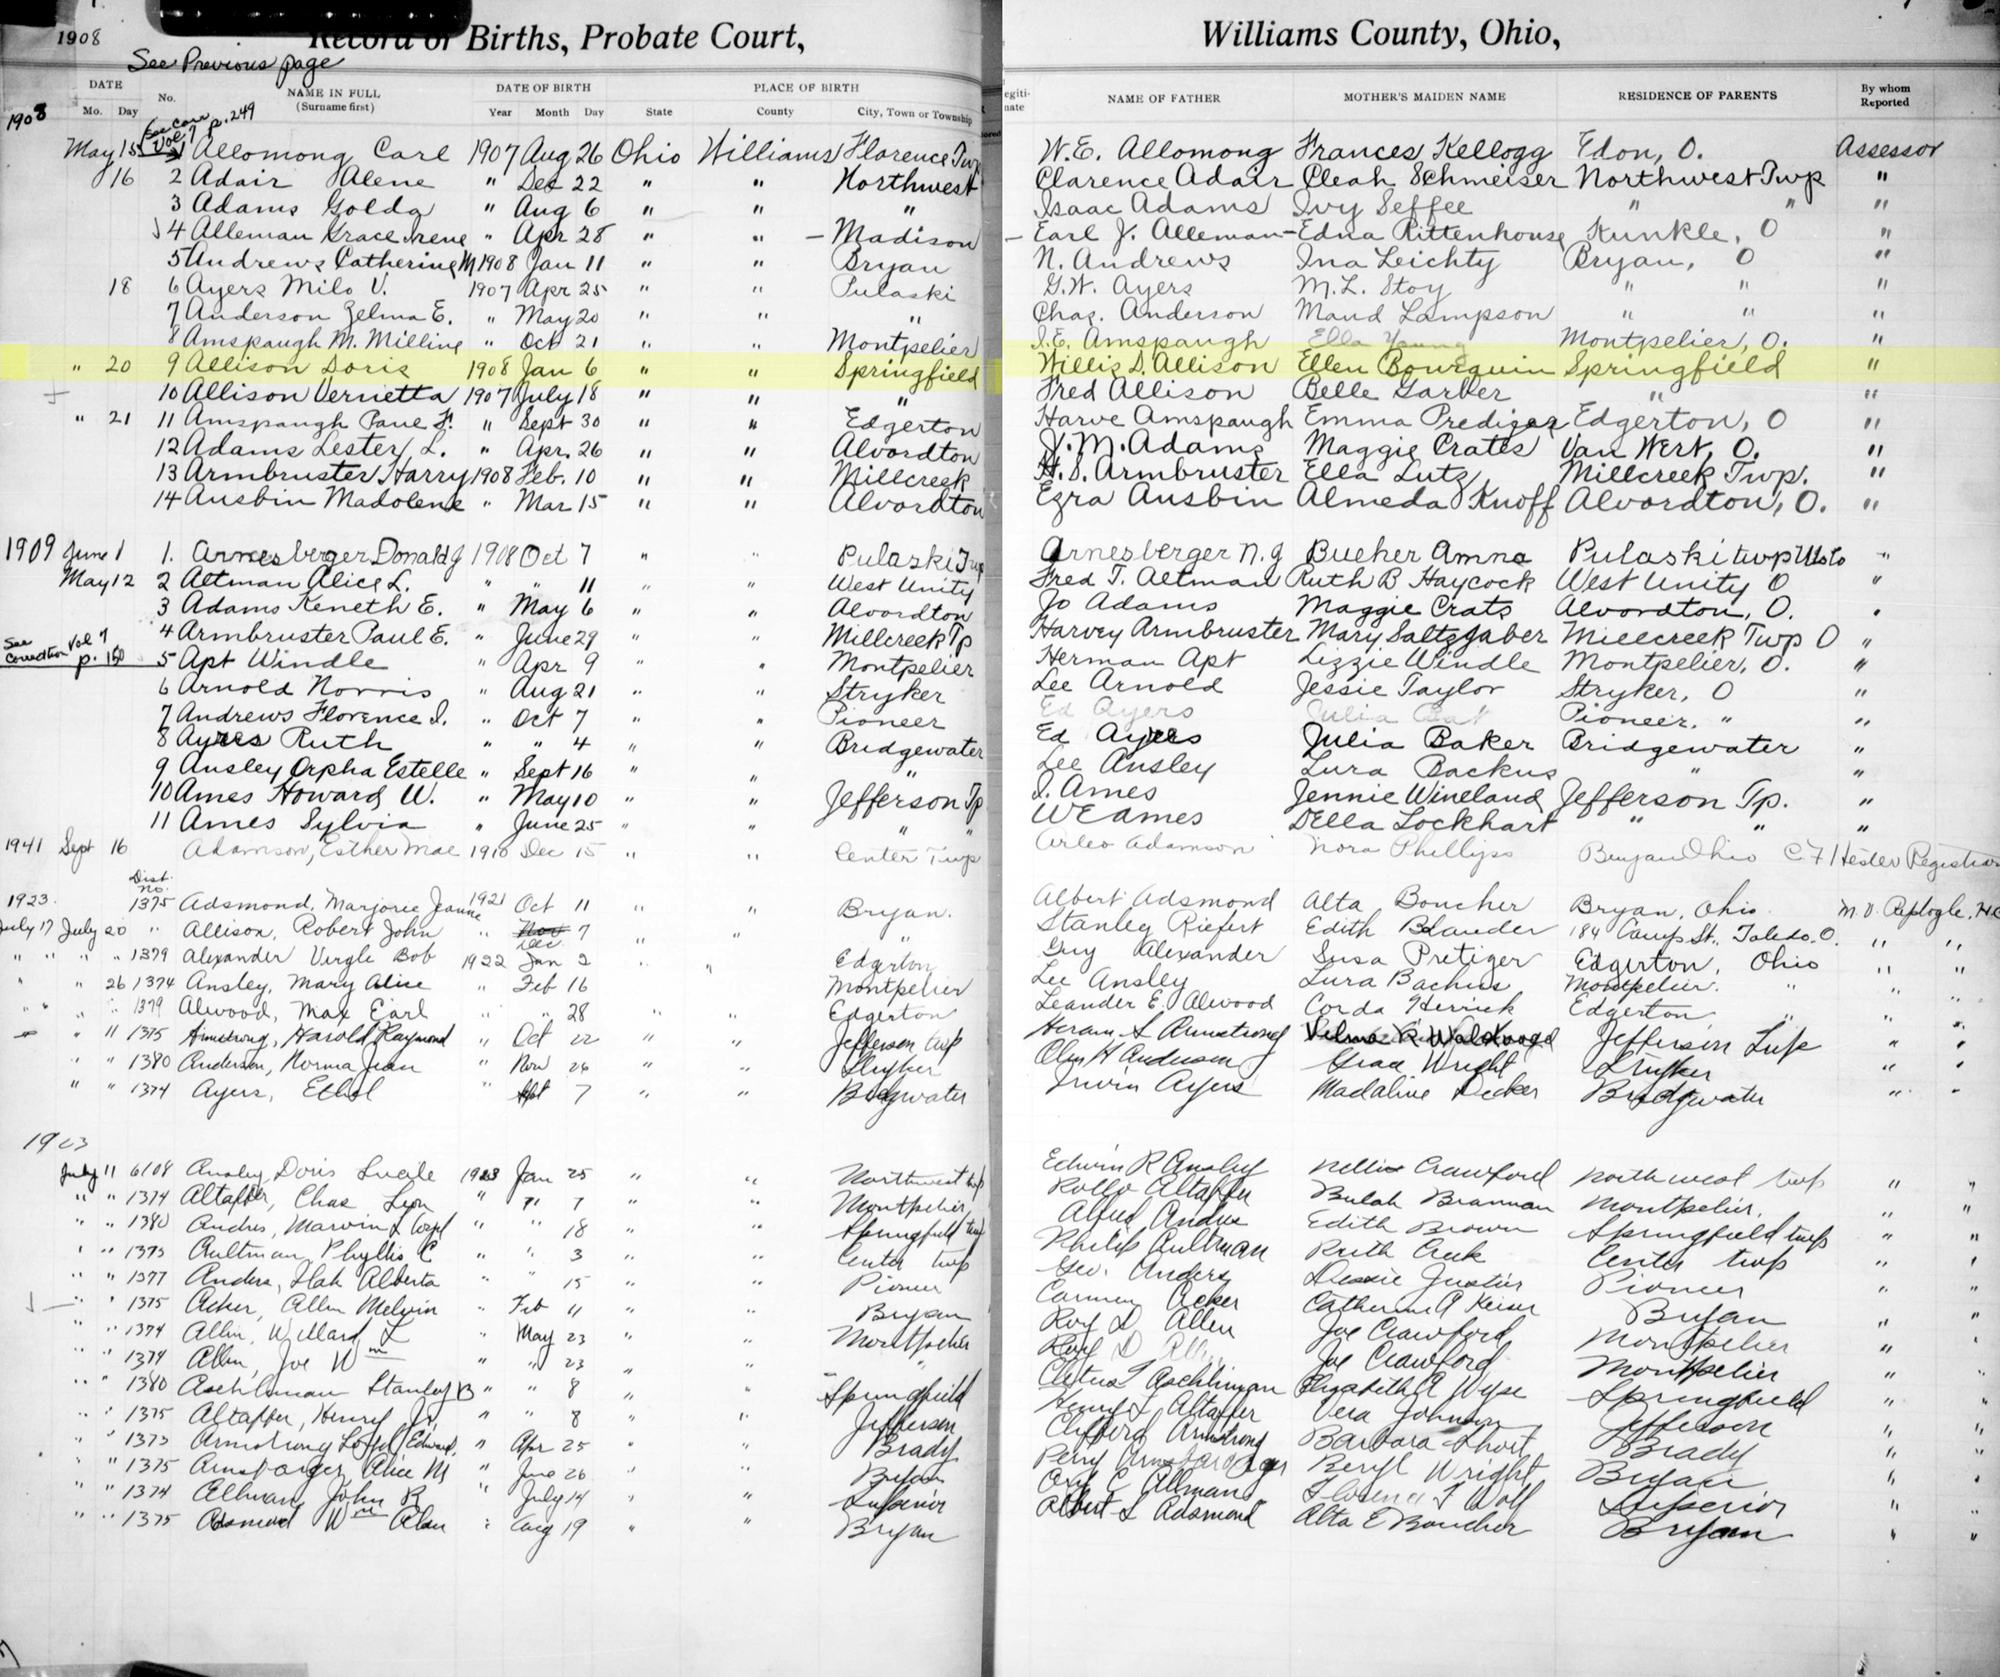 1908 Record of Births, Probate Court, Williams County, Ohio,
See Previous page
DATE No. NAME IN FULL DATE OF BIRTH PLACE OF BIRTH NAME OF FATHER MOTHER'S MAIDEN NAME RESIDENCE OF PARENTS By whom Reported
Mo. Day (Surname first) Year Month Day State County City, Town or Township
1908 See Corr Vol 7 p. 249
May 15 Allomong Carl 1907 Aug 26 Ohio Williams Florence Twp W.E. Allomong Frances Kellogg Edon, O. Assessor
16 2 Adair Alene " Dec 22 " " Northwest Clarence Adair Cleah Schmeiser Northwest Twp "
3 Adams Golda " Aug 6 " " " Isaac Adams Ivy Seffee " " "
4 Alleman Grace Irene " Apr 28 " " – Madison – Earl J. Alleman – Edna Rittenhouse Kunkle, O "
5 Andrews Catherine M 1908 Jan 11 " " Bryan N. Andrews Ina Leichty Bryan, O "
18 6 Ayers Milo V. 1907 Apr 25 " " Pulaski G.W. Ayers M.L. Stoy " " "
7 Anderson Zelma E. " May 20 " " " Chas. Anderson Maud Lampson " " "
8 Amspaugh M. Milline " Oct 21 " " Montpelier I.E. Amspaugh Ella Young Montpelier, O. "
" 20 9 Allison Doris 1908 Jan 6 " " Springfield Willis D. Allison Ellen Bourquin Springfield "
10 Allison Vernetta 1907 July 18 " " " Fred Allison Belle Garber " "
" 21 11 Amspaugh F. " Sept 30 " " Edgerton Harve Amspaugh Emma Prediger Edgerton, O "
12 Adams Lester L. " Apr. 26 " " Alvordton J.M. Adams Maggie Crates Van Wert, O. "
13 Armbruster Harry 1908 Feb. 10 " " Millcreek H.S. Armbruster Ella Lutz Millcreek Twp. "
14 Ausbin Madolene " Mar 15 " " Alvordton Ezra Ausbin Almeda Knoff Alvordton, O. "
1909 June 1 1. Arnesberger Donald J 1908 Oct 7 " " Pulaski Twp Arnesberger N.J Bueher Amna Pulaski twp "
May 12 2 Altman Alice L. " " 11 " " West Unity Fred T. Altman Ruth B Haycock West Unity O "
3 Adams Keneth E. " May 6 " " Alvordton Jo Adams Maggie Crats Alvordton, O. "
4 Armbruster Paul E. " June 29 " " Millcreek Tp Harvey Armbruster Mary Saltzgaber Millcreek Twp O "
See Correction Vol 7 p. 150 5 Apt Windle " Apr 9 " " Montpelier Herman Apt Lizzie Windle Montpelier, O. "
6 Arnold Norris " Aug 21 " " Stryker Lee Arnold Jessie Taylor Stryker, O "
7 Andrews Florence I. " Oct 7 " " Pioneer Ed Ayers Julia Pioneer. " "
8 Ayres Ruth " " 4 " " Bridgewater Ed Ayres Julia Baker Bridgewater "
9 Ansley Orpha Estelle " Sept 16 " " " Lee Ansley Lura Backus " "
10 Ames Howard W. " May 10 " " Jefferson Tp I. Ames Jennie Wineland Jefferson Tp. "
11 Ames Sylvia " June 25 " " " " W E Ames Della Lockhart " " "
1941 Sept 16 Adamson, Esther Mae 1910 Dec 15 " " Center Twp Arleo Adamson Nora Phillips Bryan Ohio C F Hester Registrar
1923 Dist. No. 1375 Adsmond, Marjorie Jeanne 1921 Oct 11 " " Bryan. Albert Adsmond Alta Boucher Bryan, Ohio. M.V. Replogle, H.C
July 17 July 20 " Allison, Robert John " Nov Dec 7 " " " Stanley Riefert Edith Blander 184 Camp St., Toledo. O. " "
" " " " 1379 Alexander Virgle Bob 1922 Jan 2 " " Edgerton Guy Alexander Susa Pretiger Edgerton, Ohio " "
" " 26 1374 Ansley, Mary Alice " Feb 16 Montpelier Lee Ansley Lura Bachus Montpelier. " " "
" " " 1379 Alwood, Max Earl " " 28 " " Edgerton Leander E. Alwood Corda Herrick Edgerton " " "
" 11 1375 Armstrong, Harold Raymond " Oct 22 " " Jefferson twp Hiram S Armstrong Jefferson Twp " "
" " 1380 Anderson, Norma Jean " Nov 26 " " Stryker Olen H Anderson Grace Wright Stryker " "
" " 1374 Ayers, Ethel " Sept 7 " " Bridgwater Irwin Ayers Madaline Decker Bridgewater " "
1923
July 11 6108 Ansley, Doris Lucile 1923 Jan 25 " " Northwest twp Edwin R Ansley Nellie Crawford Northwest twp " "
" " 1374 Altaffer, Chas Leon " " 7 " " Montpelier Rollo Altaffer Bulah Brannan Montpelier. " "
" " 1380 Andres, Marvin L " " 18 " " Springfield twp Alfred Andres Edith Brown Springfield twp " "
" " 1373 Aultman, Phyllis C " " 3 " " Center twp Philip Aultman Ruth Cuk Center twp " "
" " 1377 Anders, Ilah Alberta " " 15 " " Pioneer Geo. Anders Dessie Justus Pioneer " "
" 1375 Acker, Allen Melvin " Feb 11 " " Bryan Carmen Acker Catherine A Keiser Bryan " "
" " 1374 Allen, Willard L " May 23 " " Montpelier Roy D Allen Joe Crawford Montpelier " "
" " 1374 Allen, Joe Wm " " 23 " " " Roy D Joe Crawford Montpelier " "
" " 1380 Aschliman Stanley B " " 8 " " Springfield Cletus T Aschliman Elizabeth A Wyse Springfield " "
" " 1375 Altaffer, Henry Jr. " " 8 " " Jefferson Henry L Altaffer Vera Johnson Jefferson " "
" " 1373 Armstrong Loyd Edward. " Apr 25 " " Brady Clifford Armstrong Barbara Short Brady " "
" " 1375 Arnsbarger Alice M " June 26 " " Bryan Perry Arnsbarger Beryl Wright Bryan " "
" " 1374 Allman, John R " July 14 " " Superior C Allman Florence T Wolf Superior " "
" " 1375 Adsmond Wm Alan " Aug 19 " " Bryan Albert L Adsmond Alta E Boucher Bryan " "